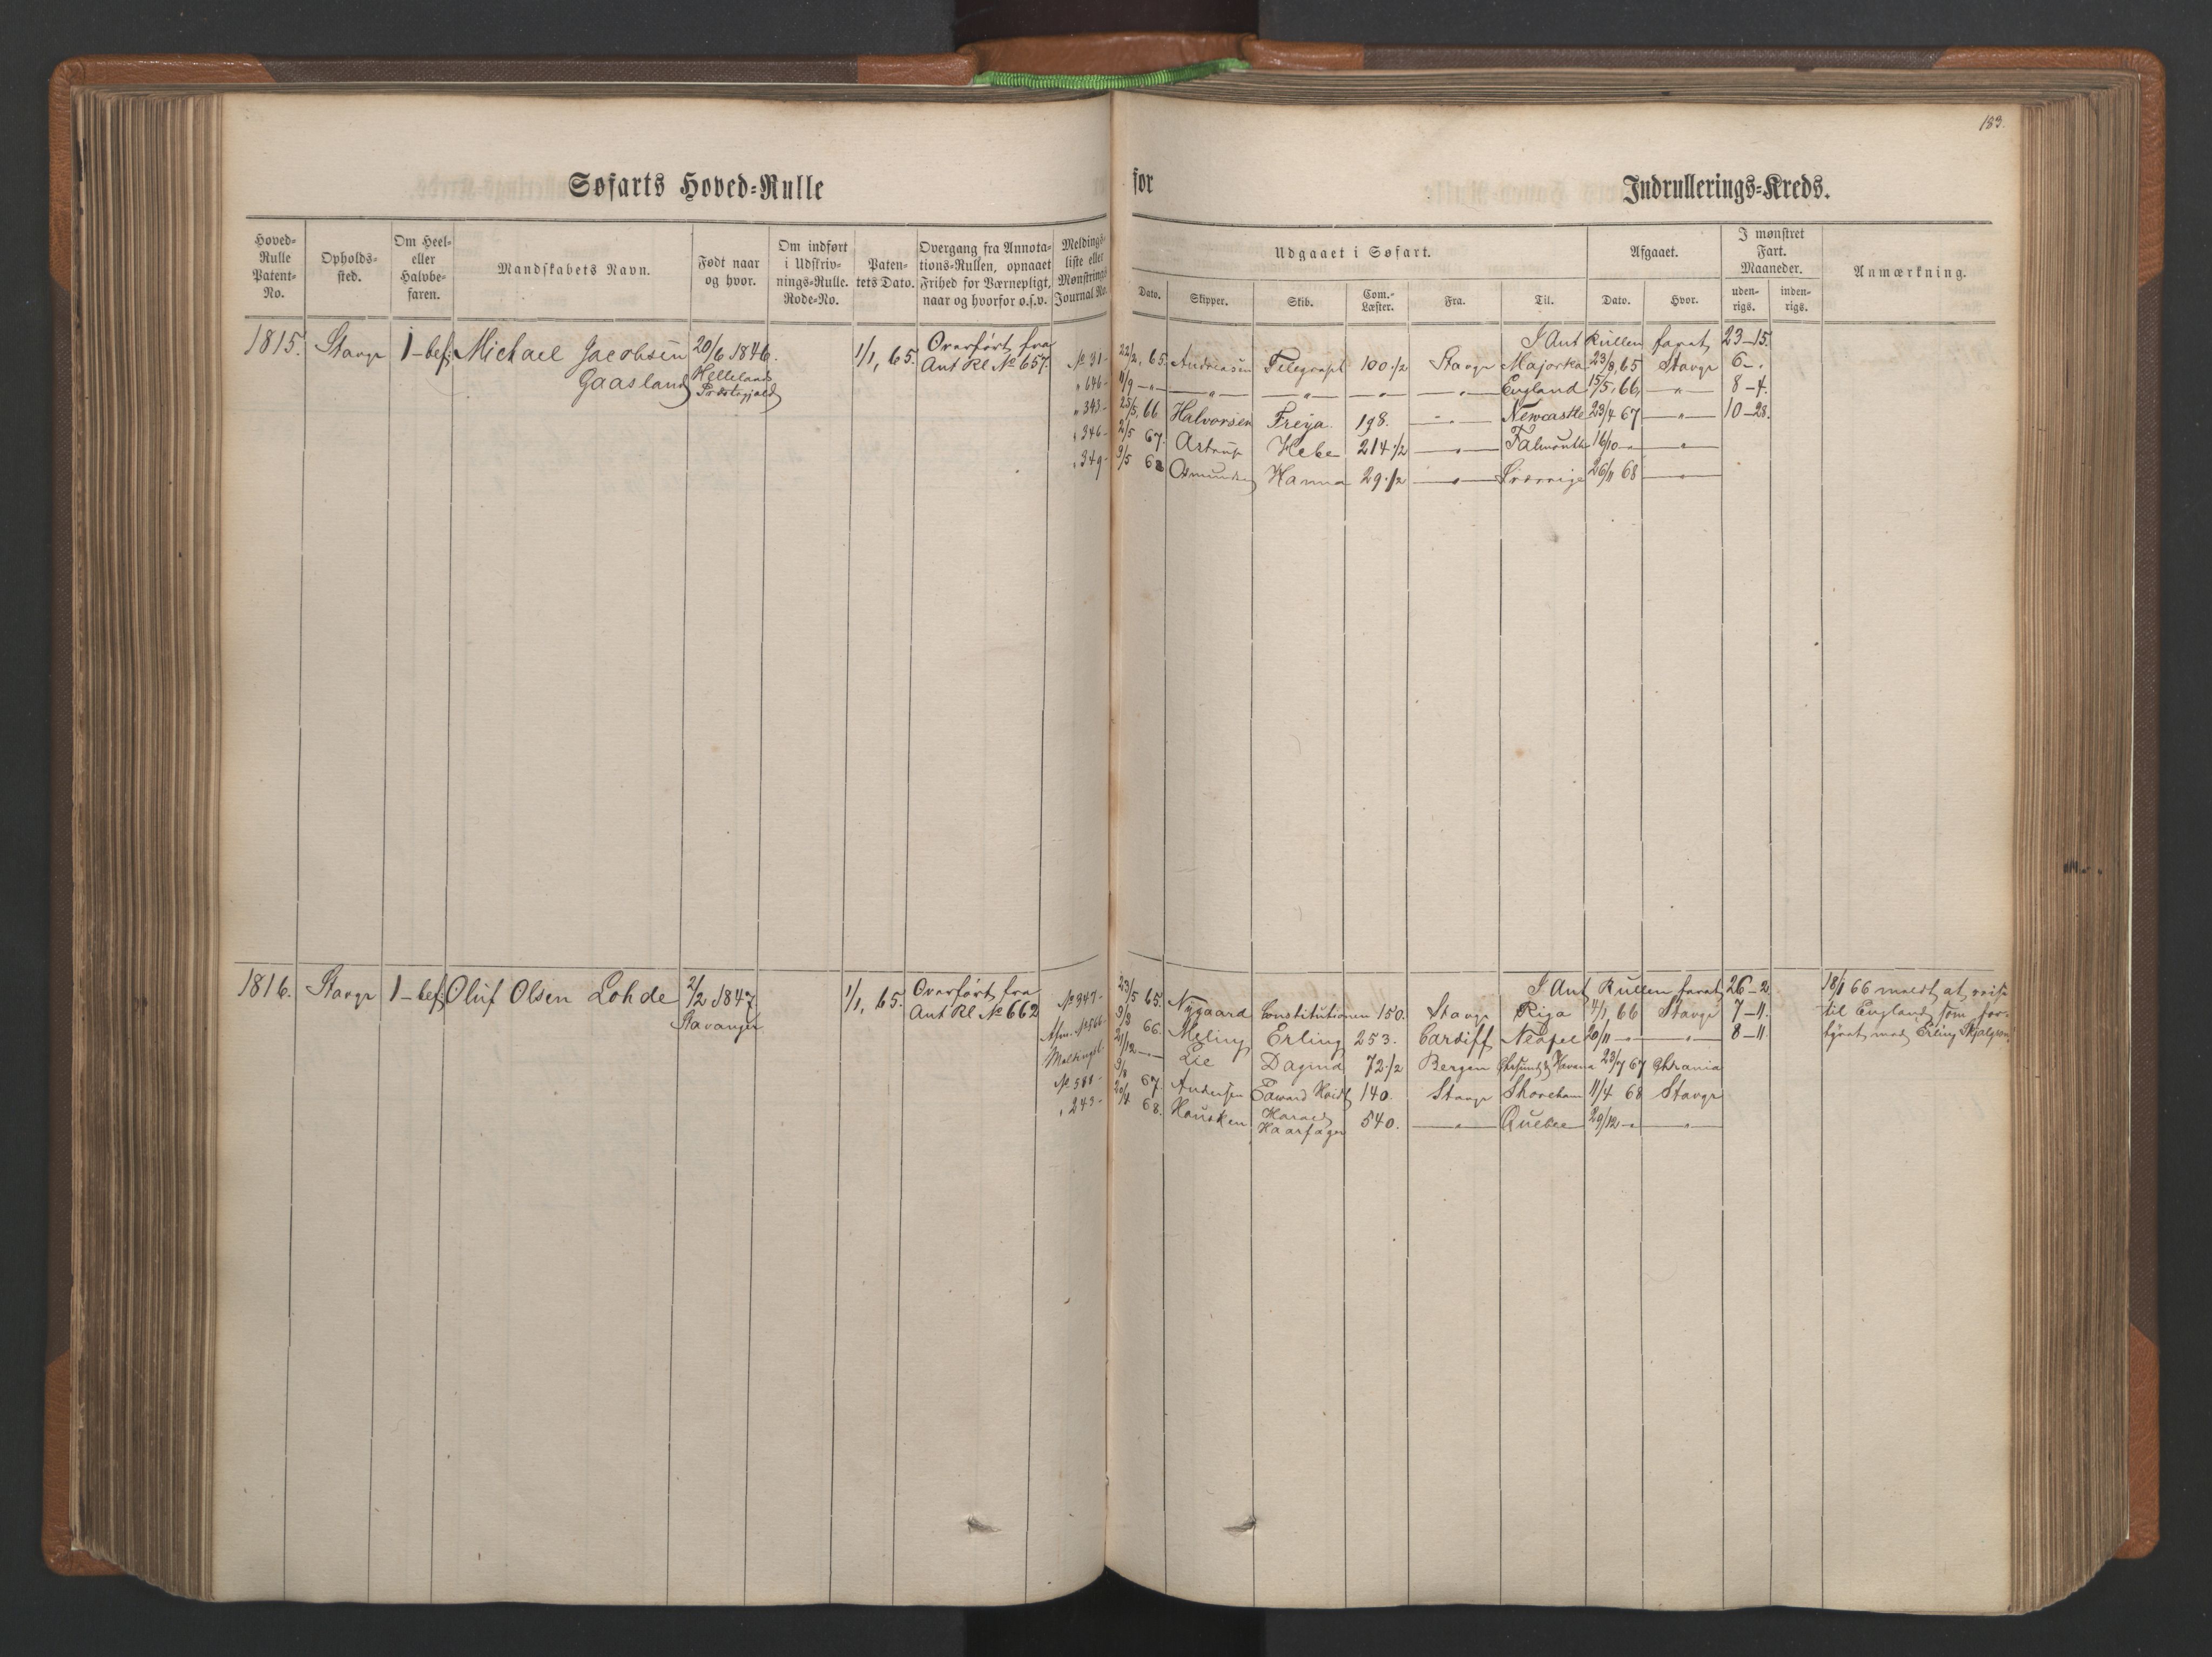 183.
Søfarts Hoved=Rulle for Indrullerings=Kreds.
Hoved=Rulle Patent=No. Opholds=sted. Om Heel= eller Halvbe=faren. Mandskabets Navn. Født naar og hvor. Om indført i Udskriv=nings=Rulle. Rode=No. Paten=tets Dato. Overgang fra Annota=tions=Rullen, opnaaet Frihed for Værnepligt, naar og hvorfor o.s.v. Meldings=liste eller Mønstrings Journal No.
Udgaaet i Søfart. Afgaaet. I mønstret Fart. Maaneder. Anmærkning.
Dato. Skipper. Skib. Com.=Læster. Fra. Til. Dato. Hvor. uden=rigs. inden=rigs.
1815. Stavgr 1-bef: Michael Jacobsen 20/6 1846. 1/1, 65. Overført fra
Gaasland Helleland Præstegjeld Ant Rl No 657.
I Ant Rullen faret 23-15.
No 31- 22/2, 65. Andreasen Telegraph 100 1/2 Stavgr Majorka 23/8, 65 Stavgr 6-.
" 646- 11/9 -"- -"- -"- -"- -"- England 15/5, 66, -"- 8-4.
" 343- 25/5, 66. Halvorsen Freya 198. -"- Newcastle 23/4 67 -"- 10-28.
" 346- 2/5 67. Astrup Hebe 214 1/2 -"- Falmouth 16/10 -"- -"-
" 349- 9/5 68 Osmundsen Hanna 29 1/2 -"- Sverrige 26/11 68 -"-
1816. Stavgr 1-bef: Oluf Olsen Lohde 2/2 1847. 1/1, 65. Overført fra
Stavanger Ant Rl No 662
I Ant Rullen faret 26-2 18/1 66 meldt at reise
No 347- 23/5 65. Nygaard Constitutionen 150. Stavgr Riga 4/1, 66 Stavgr 7-11. til England som for-
Afm. No 566- 9/8 66. Meling Erling 253. Cardiff Neapel 20/11 -"- -"- 8-11. hyret med Erling Skjalgsen
Meldingsl. 21/12 -"- Lie Dagmar 72 1/2 Bergen Chrsund & Havana 23/7 67 Chrania
No 580- 9/8 67. Andersen Edward 140. Stavgr Shoreham 11/4 68 Stavgr
" 243- 20/4 68. Hausken Harald Haarfager 540. -"- Quebec 29/12 -"- -"-